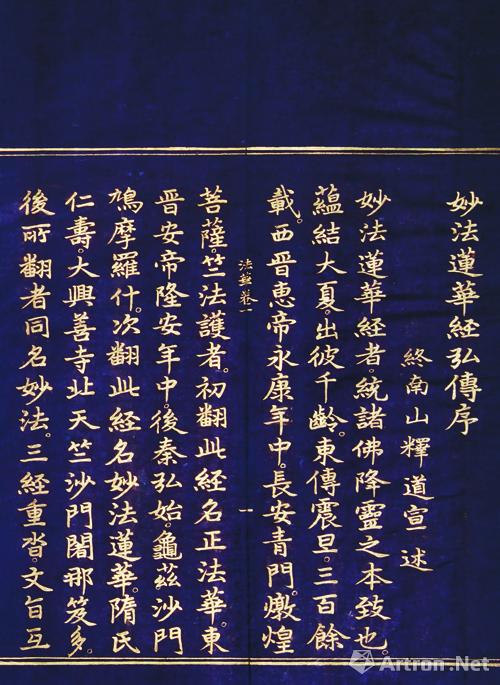 妙法蓮華經弘傳序
終南山釋道宣述
妙法蓮華經者。統諸佛降靈之本致也。
蘊結大夏。出彼千齡。東傳震旦。三百餘
載。西晉惠帝永康年中。長安青門。燉煌
法華卷一 一
菩薩。竺法護者。初翻此經名正法華。東
晉安帝隆安年中。後秦弘始。龜茲沙門
鳩摩羅什。次翻此經名妙法蓮華。隋氏
仁壽。大興善寺北天竺沙門闍那笈多。
後所翻者同名妙法。三經重沓。文旨互
Artron.Net